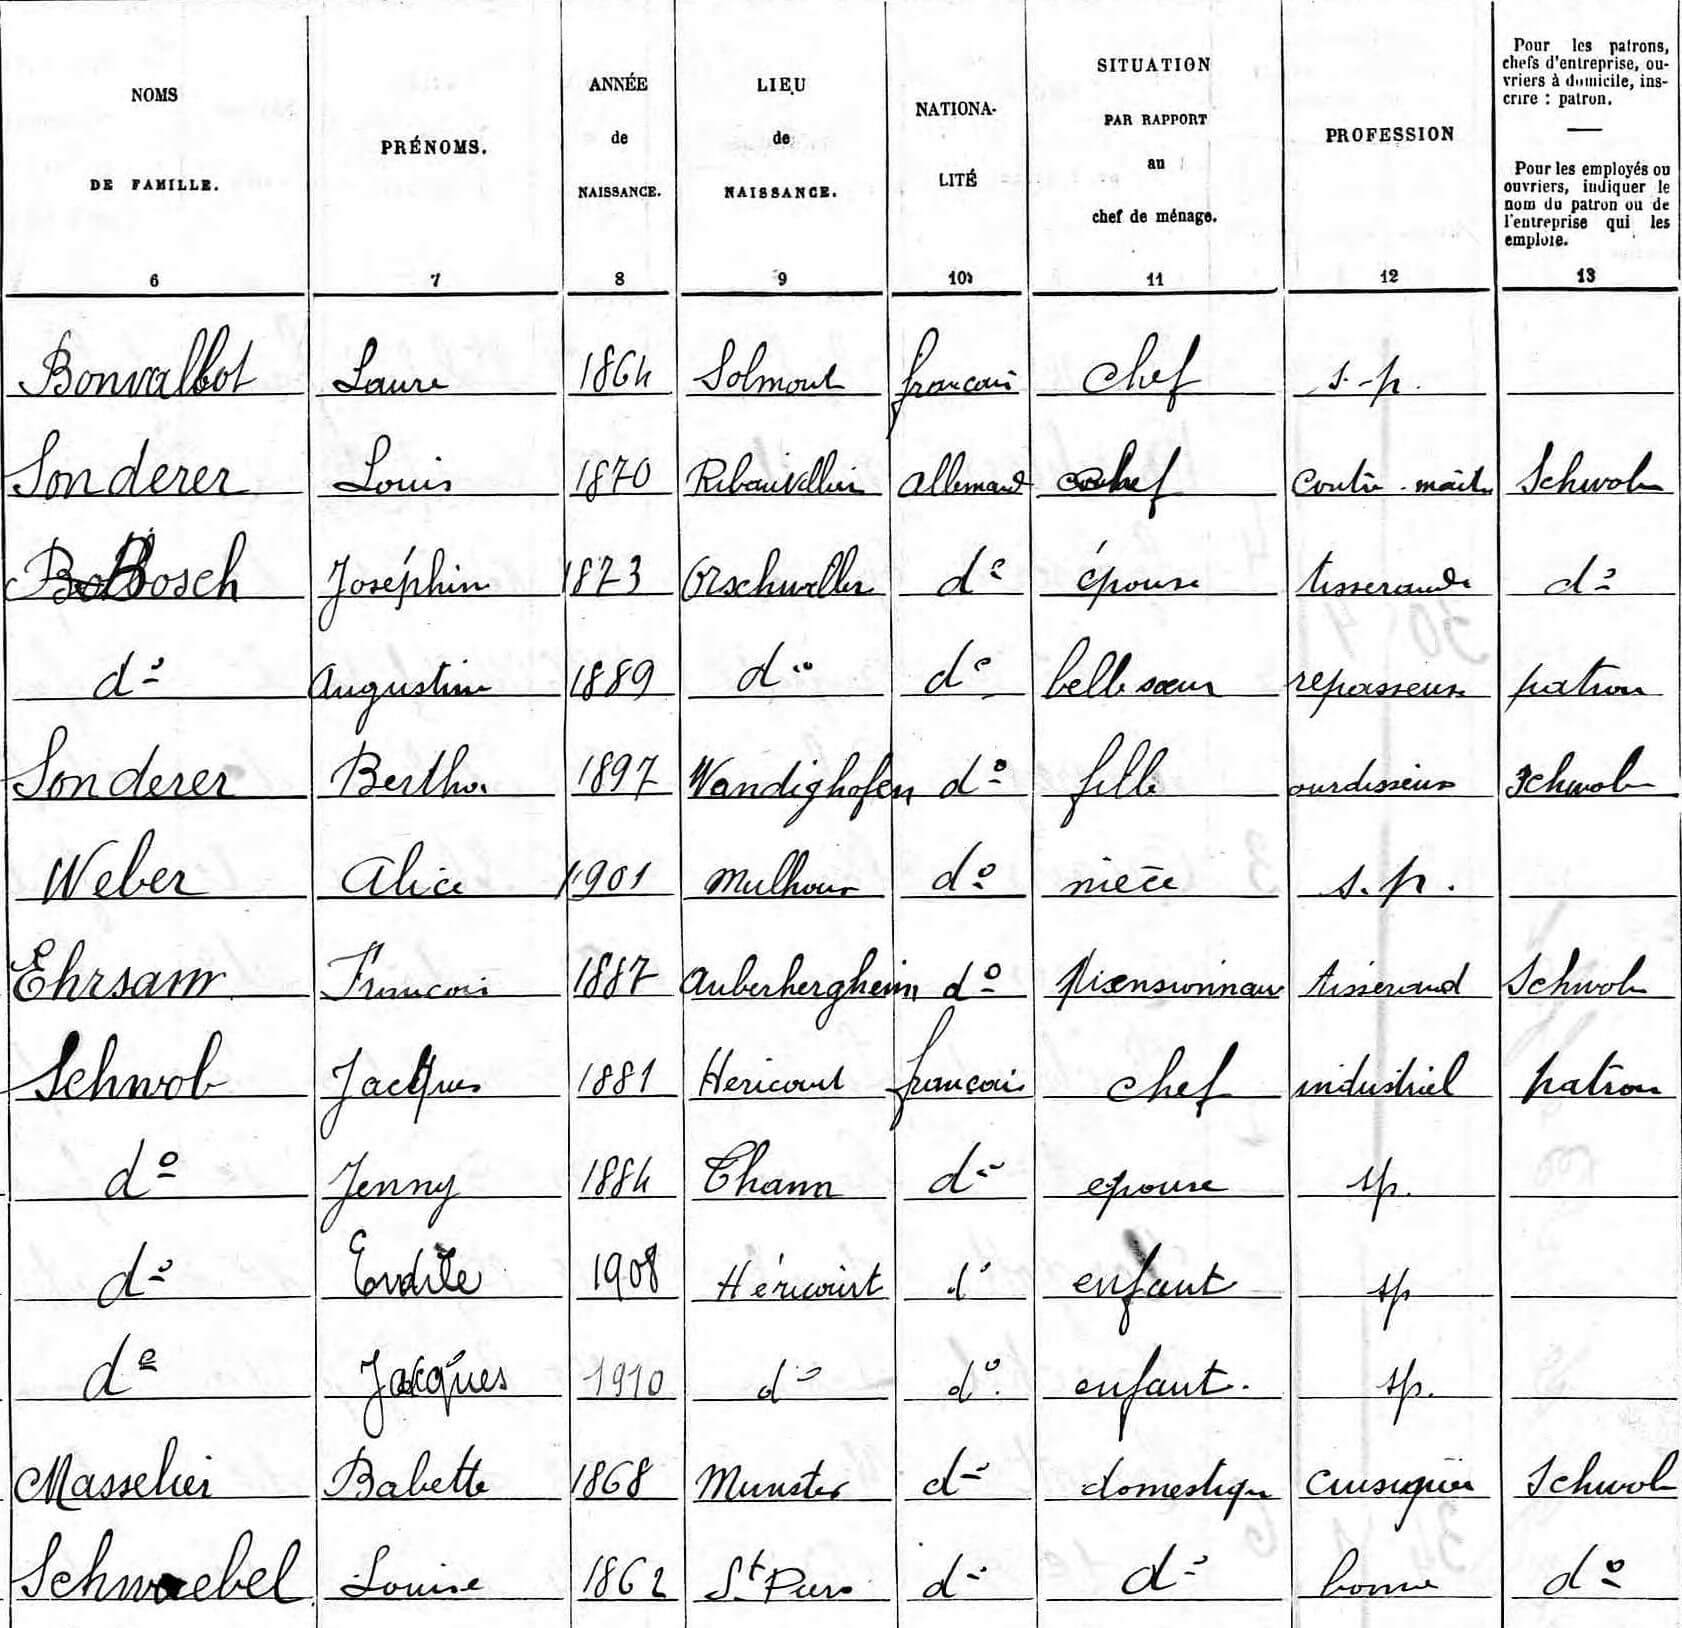 NOMS DE FAMILLE. PRÉNOMS. ANNÉE de NAISSANCE. LIEU de NAISSANCE. NATIONA-LITÉ SITUATION PAR RAPPORT au chef de ménage. PROFESSION
Pour les patrons, chefs d'entreprise, ou-
vriers à domicile, ins-
crire : patron.
Pour les employés ou
ouvriers, indiquer le
nom du patron ou de
l'entreprise qui les
emploie.
6 7 8 9 10 11 12 13
Bonvallot Laure 1864 Solmont francais chef s.-p.
Sonderer Louis 1870 Ribauvillier allemand chef contre-maitre Schwob
Bosch Joséphine 1873 Orschwiller do épouse tisserande do
do Augustine 1889 do do belle soeur repasseuse patron
Sonderer Bertha 1897 Wandighofen do fille ourdisseuse Schwob
Weber Alice 1901 Mulhouse do nièce s.p.
Ehrsam Francois 1887 Auberhergheim do pensionnaire tisserand Schwob
Schwob Jacques 1881 Hericourt francais chef industriel patron
do Jenny 1884 Thann do epouse sp.
do 1908 Héricourt do enfant sp
do Jacques 1910 do do enfant. sp.
Masselier Babette 1868 Munster do domestique cuisinière Schwob
Schwaebel Louise 1862 St do do bonne do